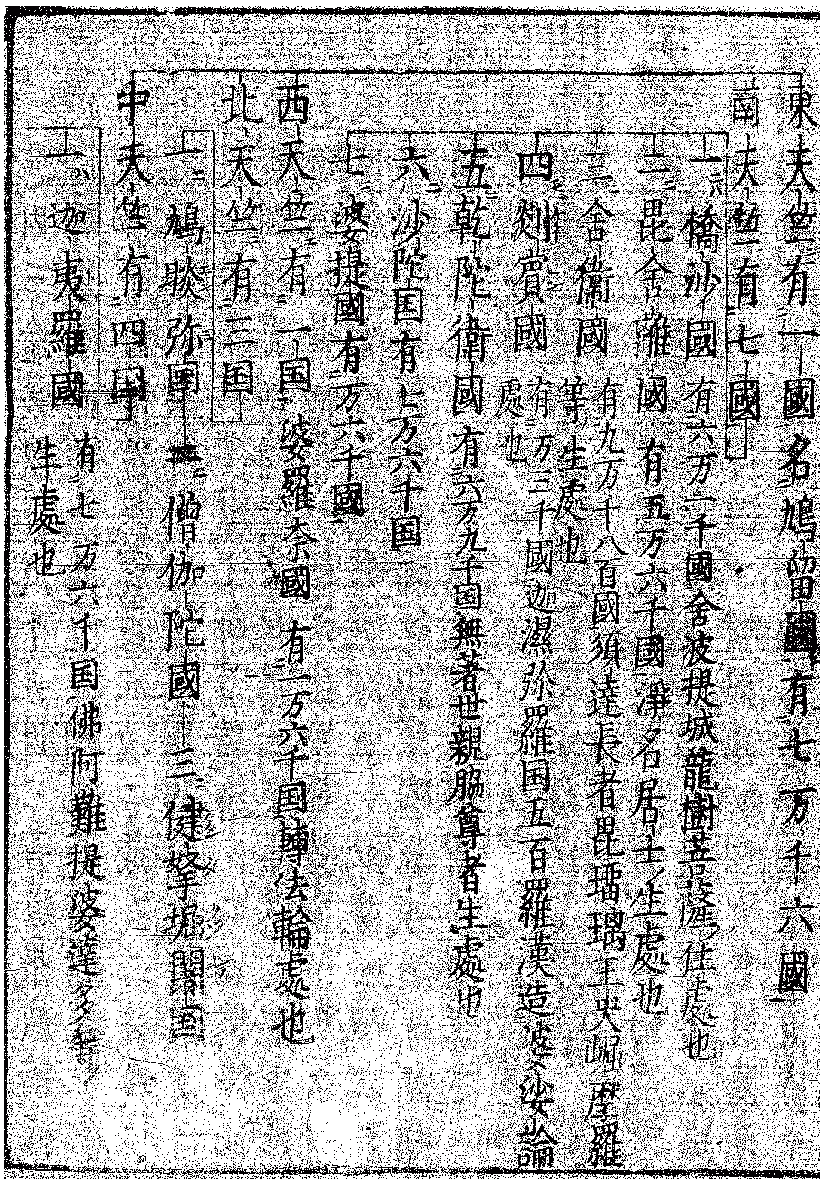 東天竺有一國名鳩留國有七万千六國
南天竺有七國
一憍沙國有六万一千國舍波提城龍樹菩薩住處也
二毘舍離國有五万六千國淨名居士生處也
三舍衛國有九万千八百國須達長者毘瑠璃王央崛摩羅
等生處也
四罽賓國有一万三千國迦濕弥羅国五百羅漢造婆娑論
處也
五乾陀衛國有六万九千国無著世親脇尊者生處也
六沙陀国有七万六千国
七婆提國有一万六千國
西天竺有一国婆羅奈國有一万六千国轉法輪處也
北天竺有三国
一鳩睒弥国二僧伽陀國三健拏堀闍国
中天竺有四国
一迦夷羅國有七万六千国佛阿難提婆達多等
生處也